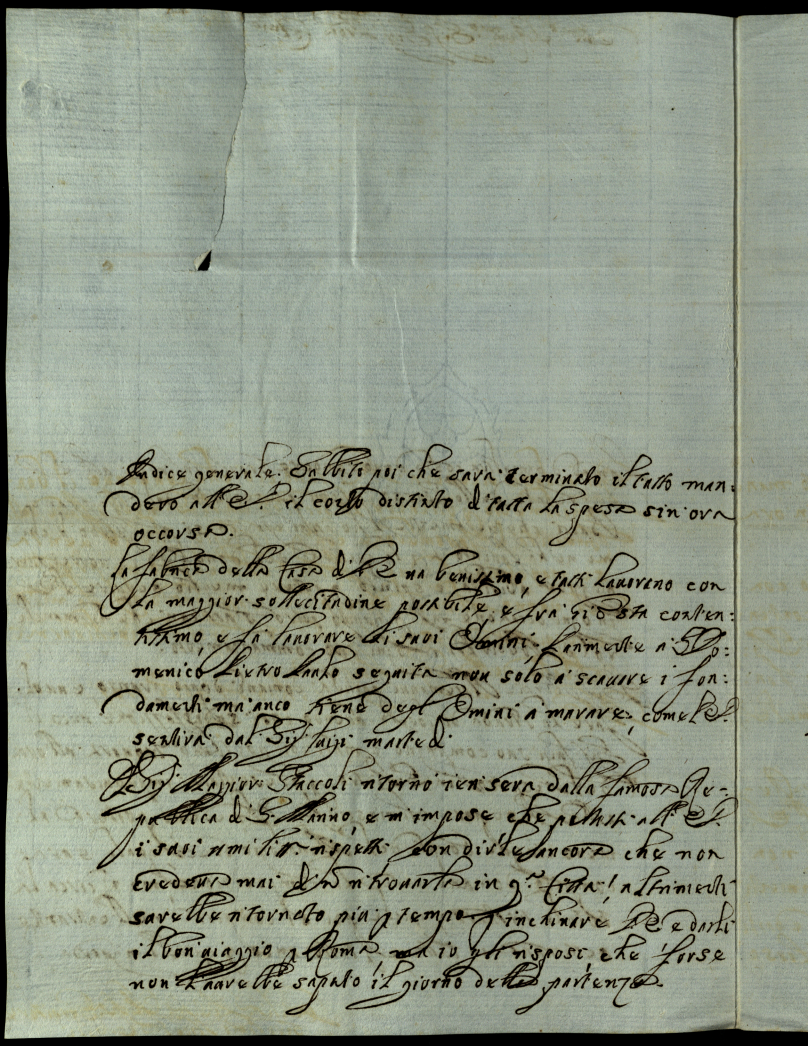 Indice generale. Subbito poi che sara terminato il tutto man:
dero all' il conto distinto di tutta la spesa sin' ora
occorsa.
La fabrica della Casa di va benissimo, e tutti lavorano con
la maggior sollecitudine possibile, e fra Gio sta conten:
tissimo, e fa lavorare li suoi Omini. Parimente a S. Do:
menico Pietro Paulo seguita non solo a scavare i fon:
damenti ma anco tiene degl' Omini a murare, come
sentira dal Sig.r Luigi martedi
Il Sig.r Maggior Staccoli ritorno ieri sera dalla famosa Re-
publica di S. Marino e m' impose che all'
i suoi umiliss.i rispetti con dirle ancora che non
credeva mai di non ritrovarla in q.ta Citta, altrimenti
sarebbe ritornato piu p tempo p inchinare e darli
il bon viaggio p Roma, ma io gli risposi che forse
non haverebbe saputo il giorno della partenza.